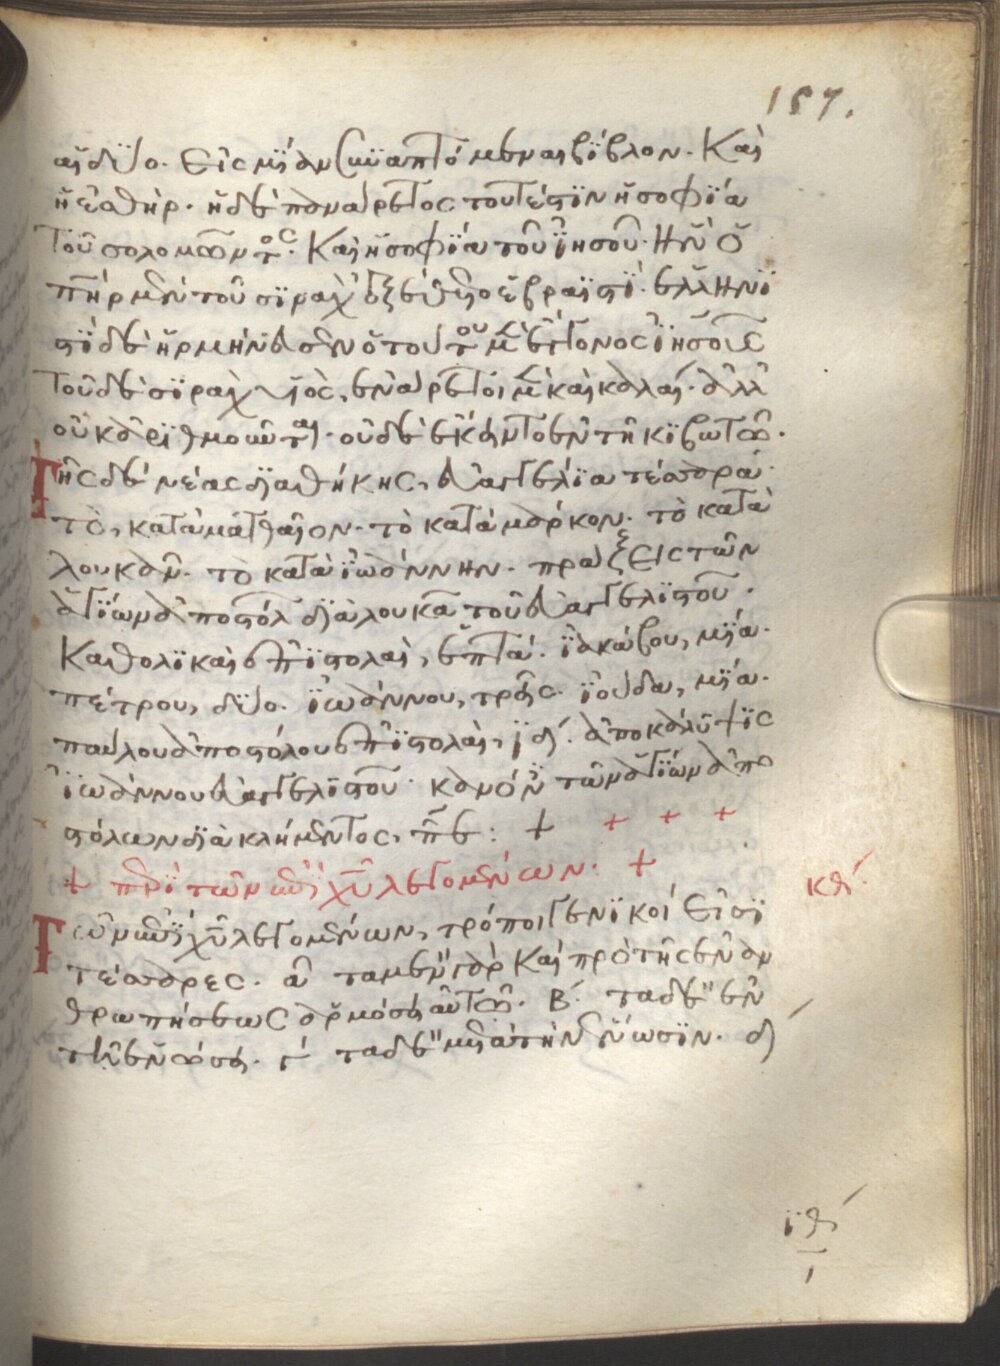 187.
αἱ δύο. εἰς μίαν συναπτόμεναι βίβλον. Καὶ
ἡ ἐσθήρ. ἡ δὲ πανάρετος τουτέστιν ἡ σοφία
τοῦ σολομῶντος. Καὶ ἡ σοφία τοῦ ἰησοῦ. Ἣν ὁ
πηρ μὲν τοῦ σιρὰχ ἐξέθετο ἑβραϊστί. ἑλληνι
στὶ δὲ ἡρμήνευσεν ὁ τούτου μὲν ἔγγονος ἰησοῦς
τοῦ δὲ σιρὰχ υἱός. ἐνάρετοι μὲν καὶ καλαί. ἀλλ
οὐκ ἀριθμοῦνται. οὐδὲ ἔκειντο ἐν τῇ κιβωτῶ.
Τῆς δὲ νέας διαθήκης, εὐαγγέλια τέσσαρα.
τὸ, κατὰ ματθαῖον. τὸ κατὰ μάρκον. τὸ κατὰ
λουκᾶν. τὸ κατὰ ἰωάννην. πράξεις τῶν
ἁγίων ἀποστόλ διὰ λουκᾶ τοῦ εὐαγγελιστοῦ.
Καθολικαὶ ἐπιστολαὶ, ἑπτά. ἰακώβου, μία.
πέτρου, δύο. ἰωάννου, τρεῖς. ἰούδα, μία.
παύλου ἀποστόλου ἐπιστολαὶ, ιδ΄. ἀποκάλυψις
ἰωάννου εὐαγγελιστοῦ. κανόν τῶν ἁγίων ἀπο
στόλων διὰ κλήμεντος, πε : + + + +
+ περὶ τῶν ἐπὶ χυ λεγομένων. + κθ΄.
Τῶν ἐπὶ χυ λεγομένων, τρόποι γενικοί εἰσι
τέσσαρες. α τὰ μὲν γὰρ καὶ πρὸ τῆς ἐναν
θρωπήσεως ἁρμόσει αὐτῶ. Β΄. τὰ δὲ ἐν
τῇ ἑνώσει. γ΄ τὰ δὲ μετὰ τὴν ἕνωσιν. δ΄
ιθ΄